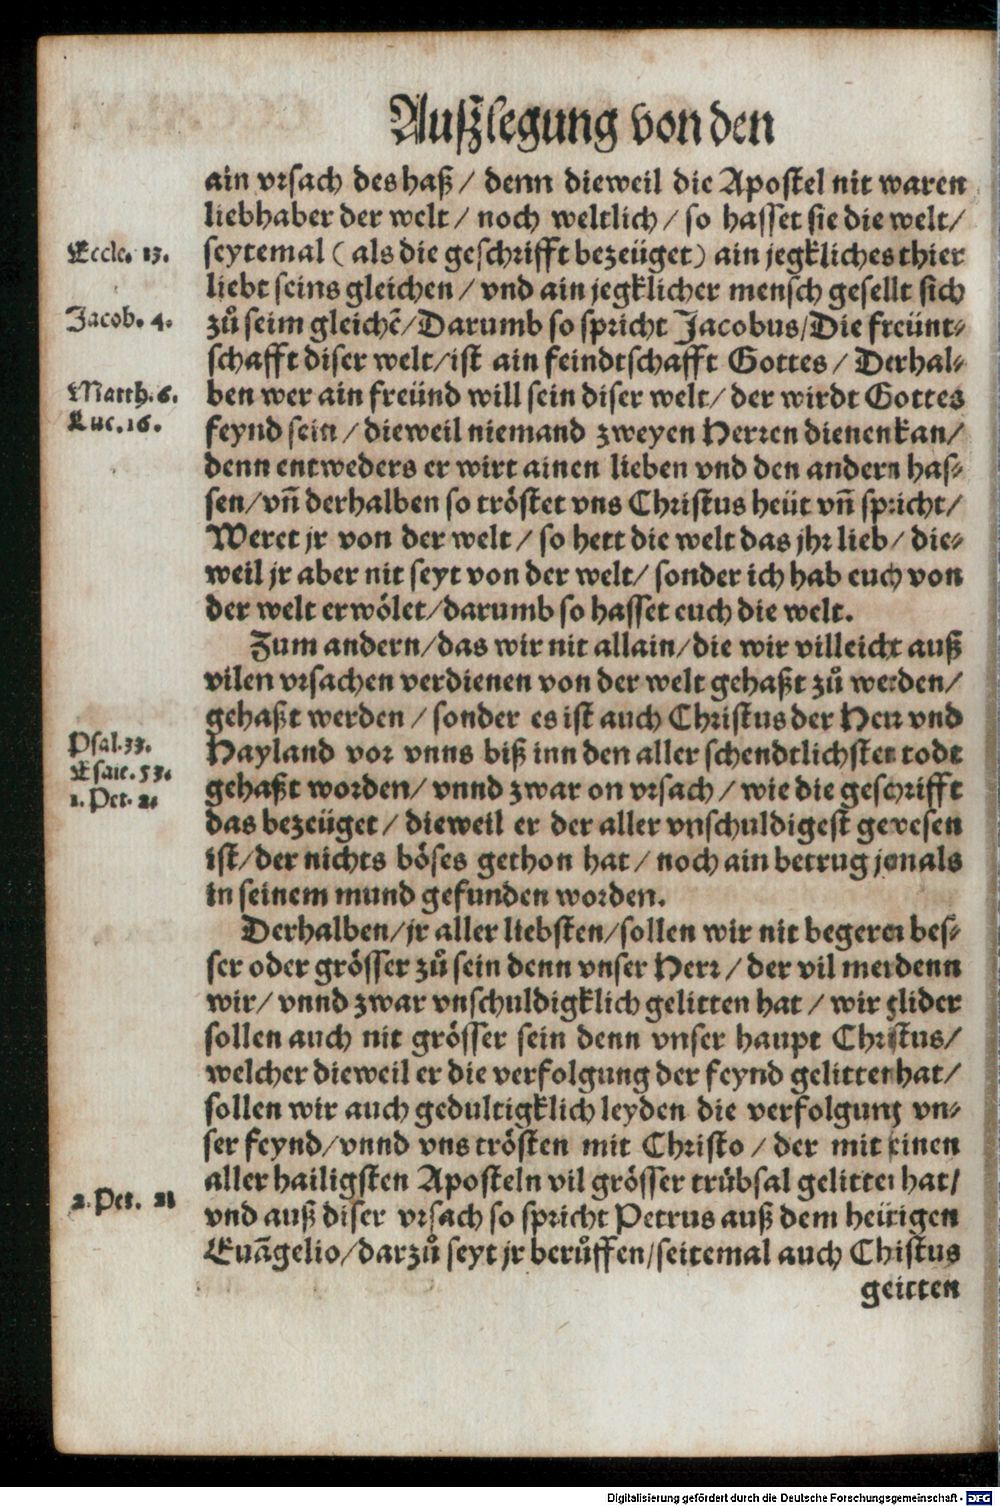 Außlegung von den
ain vrsach des haß / denn dieweil die Apostel nit waren
liebhaber der welt / noch weltlich / so hasset sie die welt /
Eccle. 13.
seytemal ( als die geschrifft bezeüget ) ain jegkliches thier
liebt seins gleichen / vnd ain jegklicher mensch gesellt sich
Jacob. 4.
zů seim gleichē / Darumb so spricht Jacobus / Die freünt-
schafft diser welt / ist ain feindtschafft Gottes / Derhal-
Matth. 6.
ben wer ain freünd will sein diser welt / der wirdt Gottes
Luc. 16.
feynd sein / dieweil niemand zweyen Herren dienen kan /
denn entweders er wirt ainen lieben vnd den andern has-
sen / vñ derhalben so tröstet vns Christus heüt vñ spricht /
Weret jr von der welt / so hett die welt das jhr lieb / die-
weil jr aber nit seyt von der welt / sonder ich hab euch von
der welt erwölet / darumb so hasset euch die welt.
Zum andern / das wir nit allain / die wir villeicht auß
vilen vrsachen verdienen von der welt gehaßt zů werden /
gehaßt werden / sonder es ist auch Christus der Herr vnd
Psal. 33.
Hayland vor vnns biß inn den aller schendtlichsten todt
Esaie. 53.
1. Pet. 2.
gehaßt worden / vnnd zwar on vrsach / wie die geschrifft
das bezeüget / dieweil er der aller vnschuldigest gewesen
ist / der nichts böses gethon hat / noch ain betrug jemals
in seinem mund gefunden worden.
Derhalben / jr aller liebsten / sollen wir nit begeren bes-
ser oder grösser zů sein denn vnser Herr / der vil mer denn
wir / vnnd zwar vnschuldigklich gelitten hat / wir glider
sollen auch nit grösser sein denn vnser haupt Christus /
welcher dieweil er die verfolgung der feynd gelitten hat /
sollen wir auch gedultigklich leyden die verfolgung vn-
ser feynd / vnnd vns trösten mit Christo / der mit seinen
aller hailigsten Aposteln vil grösser trübsal gelitten hat /
2. Pet. 21
vnd auß diser vrsach so spricht Petrus auß dem heütigen
Euāgelio / darzů seyt jr berůffen / seitemal auch Chistus
geitten
Digitalisierung gefördert durch die Deutsche Forschungsgemeinschaft - DFG